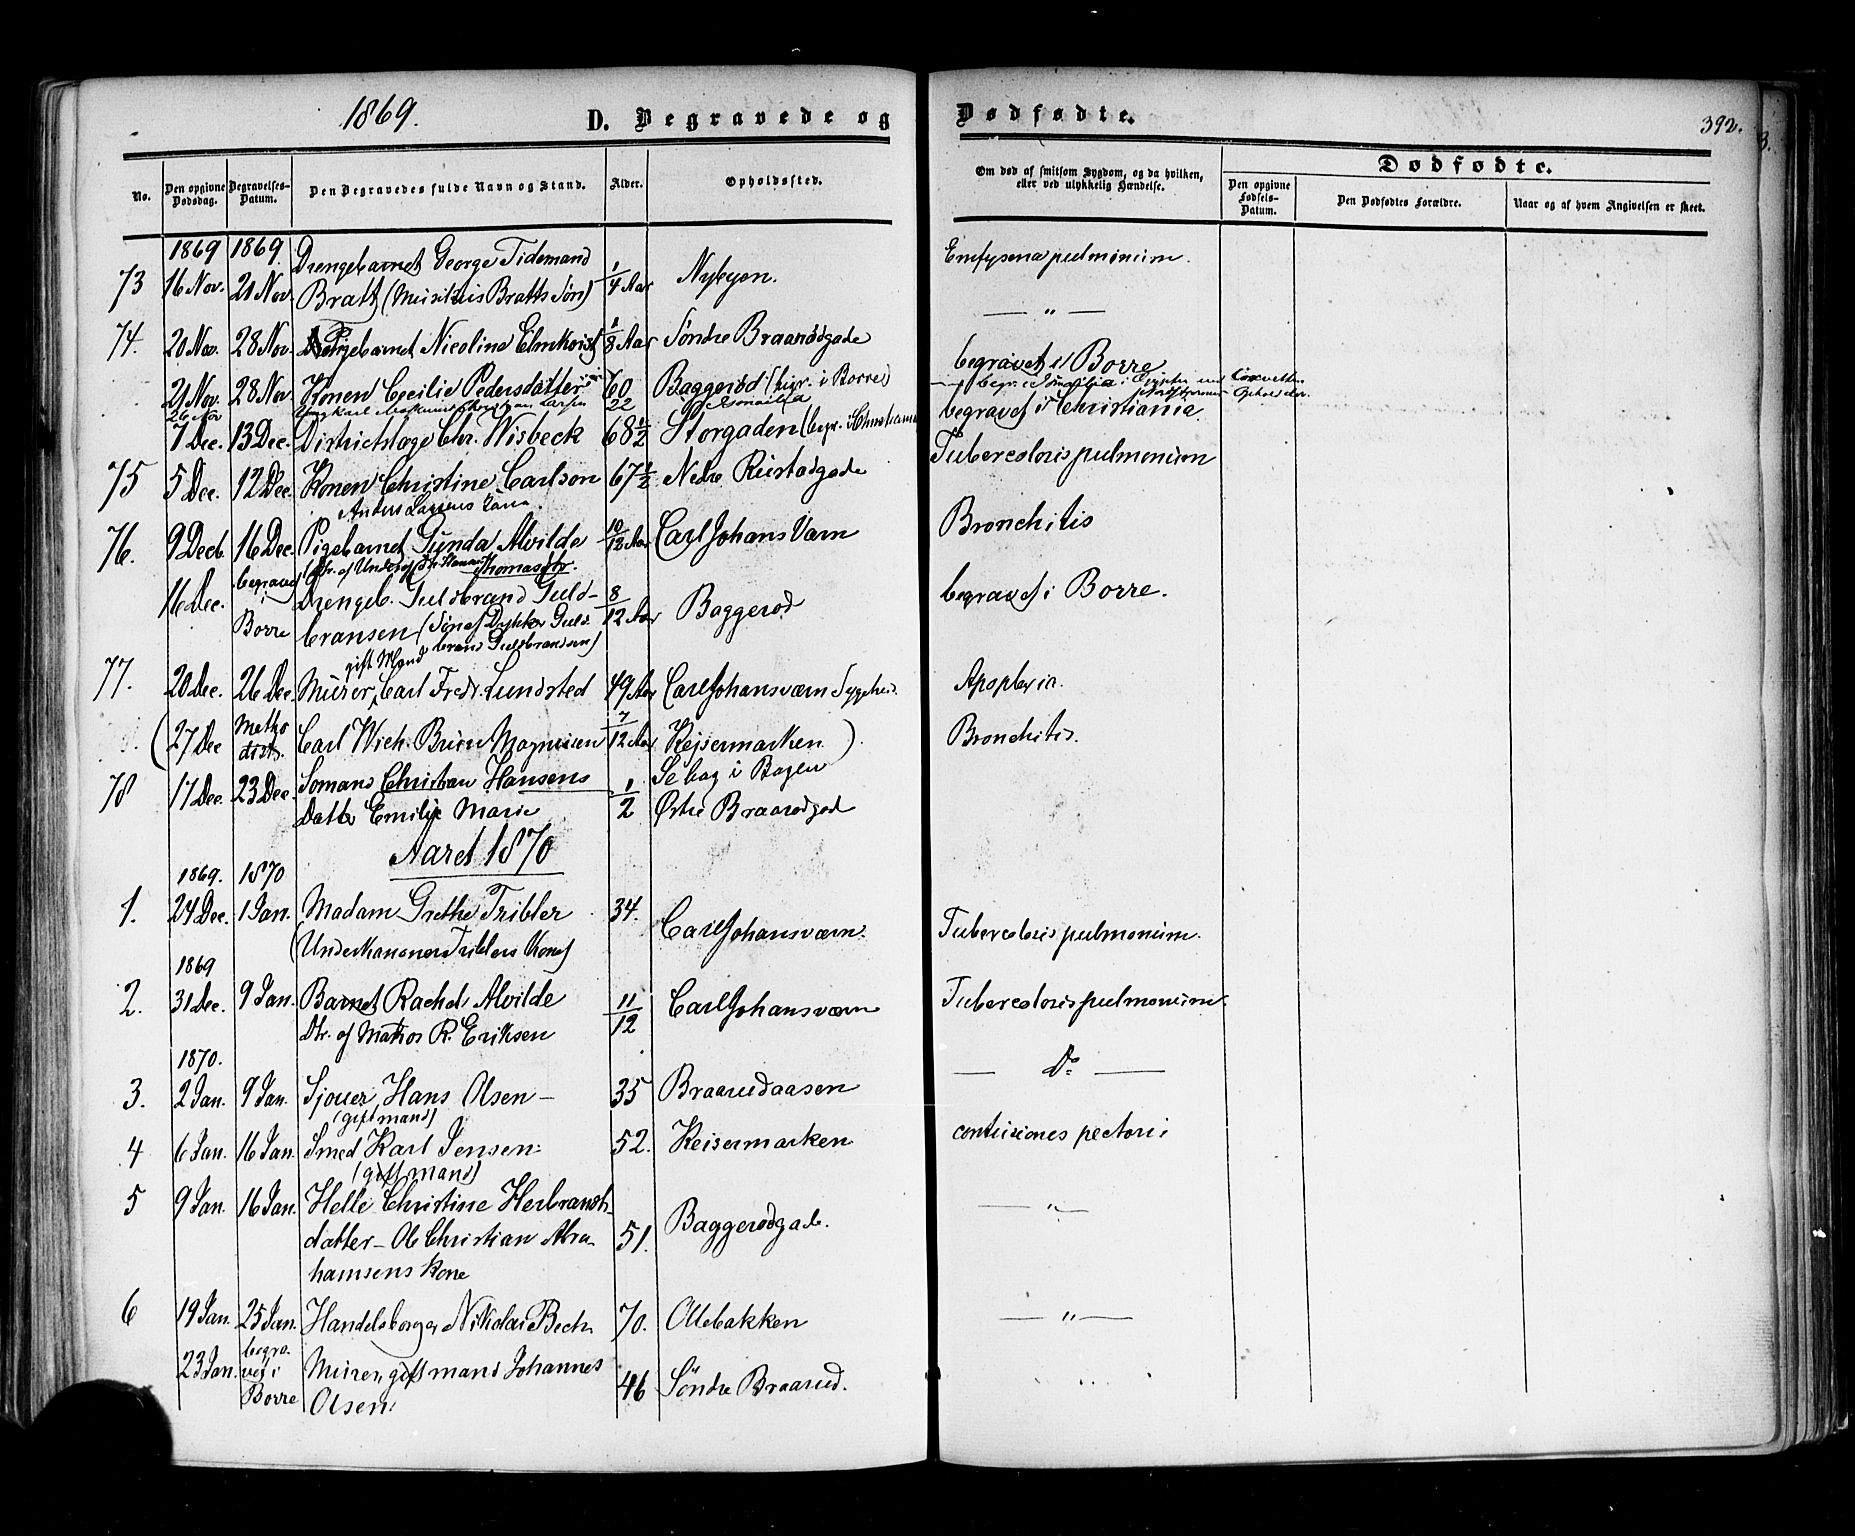 1869.
D. Begravede og Dødfødte.
392.
No.
Den opgivne Dødsdag.
Begravelses-Datum.
Den Begravedes fulde Navn og Stand.
Alder.
Opholdssted.
Om død af smitsom Sygdom, og da hvilken, eller ved ulykkelig Hændelse.
Dødfødte.
Den opgivne Fødsels-Datum.
Den Dødfødtes Forældre.
Naar og af hvem Angivelsen er skeet.
1869 1869.
73 16 Nov. 21 Nov Drengebarnet George Tidemand 1/4 Aar Nybyen. Emfysena pulmonum.
Bratt (Musikus Bratts Søn)
74. 20 Nov. 28 Nov. Pigebarnet Nicoline Elmkvist 1/8 Aar Søndre Braarødgade — " —
21 Nov. 28 Nov. Konen Cecilie Pedersdatter 60 Baggerød (begr. i Borre) begravet i Borre
26 Nov 22 Ismailia
7 Dec. 13 Dec. Districtslæge Chr. Wisbeck 68 1/2 Storgaden (begr. i Christiania begravet i Christiania
75 5 Dec. 12 Dec. Konen Christine Carlson 67 1/2 Nedre Rustadgade Tubercoloris pulmonum
Anders Larsens Kone
76. 9 Decb. 16 Dec. Pigebarnet Gunda Alvilde 10/12 Aar Carl Johans Værn Bronchitis
Thomas
16 Dec. begravet i Borre Drengeb. Guldbrand Guld- 8/12 Aar Baggerød begravet i Borre.
bransen (Søn af Dykker Guld-
brand Guldbrandsen)
gift Mand
77. 20 Dec. 26 Dec. Murer, Carl Fredr. Lundsted 49 Aar Carl Johansværn Sygehus. Apoplexia.
(27 Dec Methodist. Carl Wich. Bruun Magnusen 7/12 Aar Keisermarken ). Bronchitis.
Se bag i Bogen
78 17 Dec. 23 Dec. Somand Christian Hansens 1/2 Østre Braarødgad
Datter Emilie Marie
Aaret 1870
1869. 1870
1. 24 Dec. 1 Jan. Madam Grethe Tribler 34. Carl Johansværn. Tubercoloris pulmonum.
(Underkanoner Triblers Kone)
1869
2. 31 Dec. 9 Jan. Barnet Rachel Alvilde 11/12 Carl Johansværn Tubercoloris pulmonum
Dtr. af Matros R. Eriksen
1870.
3. 2 Jan. 9 Jan. Sjouer Hans Olsen — 35 Braarudaasen — Do —
(gift mand)
4 6 Jan. 16 Jan. Smed Karl Jensen 52. Keisermarken contusiones pectori
(gift mand)
5 9 Jan. 16 Jan. Helle Christine Herbrands- 51. Baggerødgade. — " —
datter — Ole Christian Abra-
hamsens Kone
6 19 Jan. 25 Jan. Handelsborger Nikolai Bech 70. Ollebakken — " —
23 Jan. begravet i Borre Murer, gift mand Johannes 46 Søndre Braarud.
Olsen.